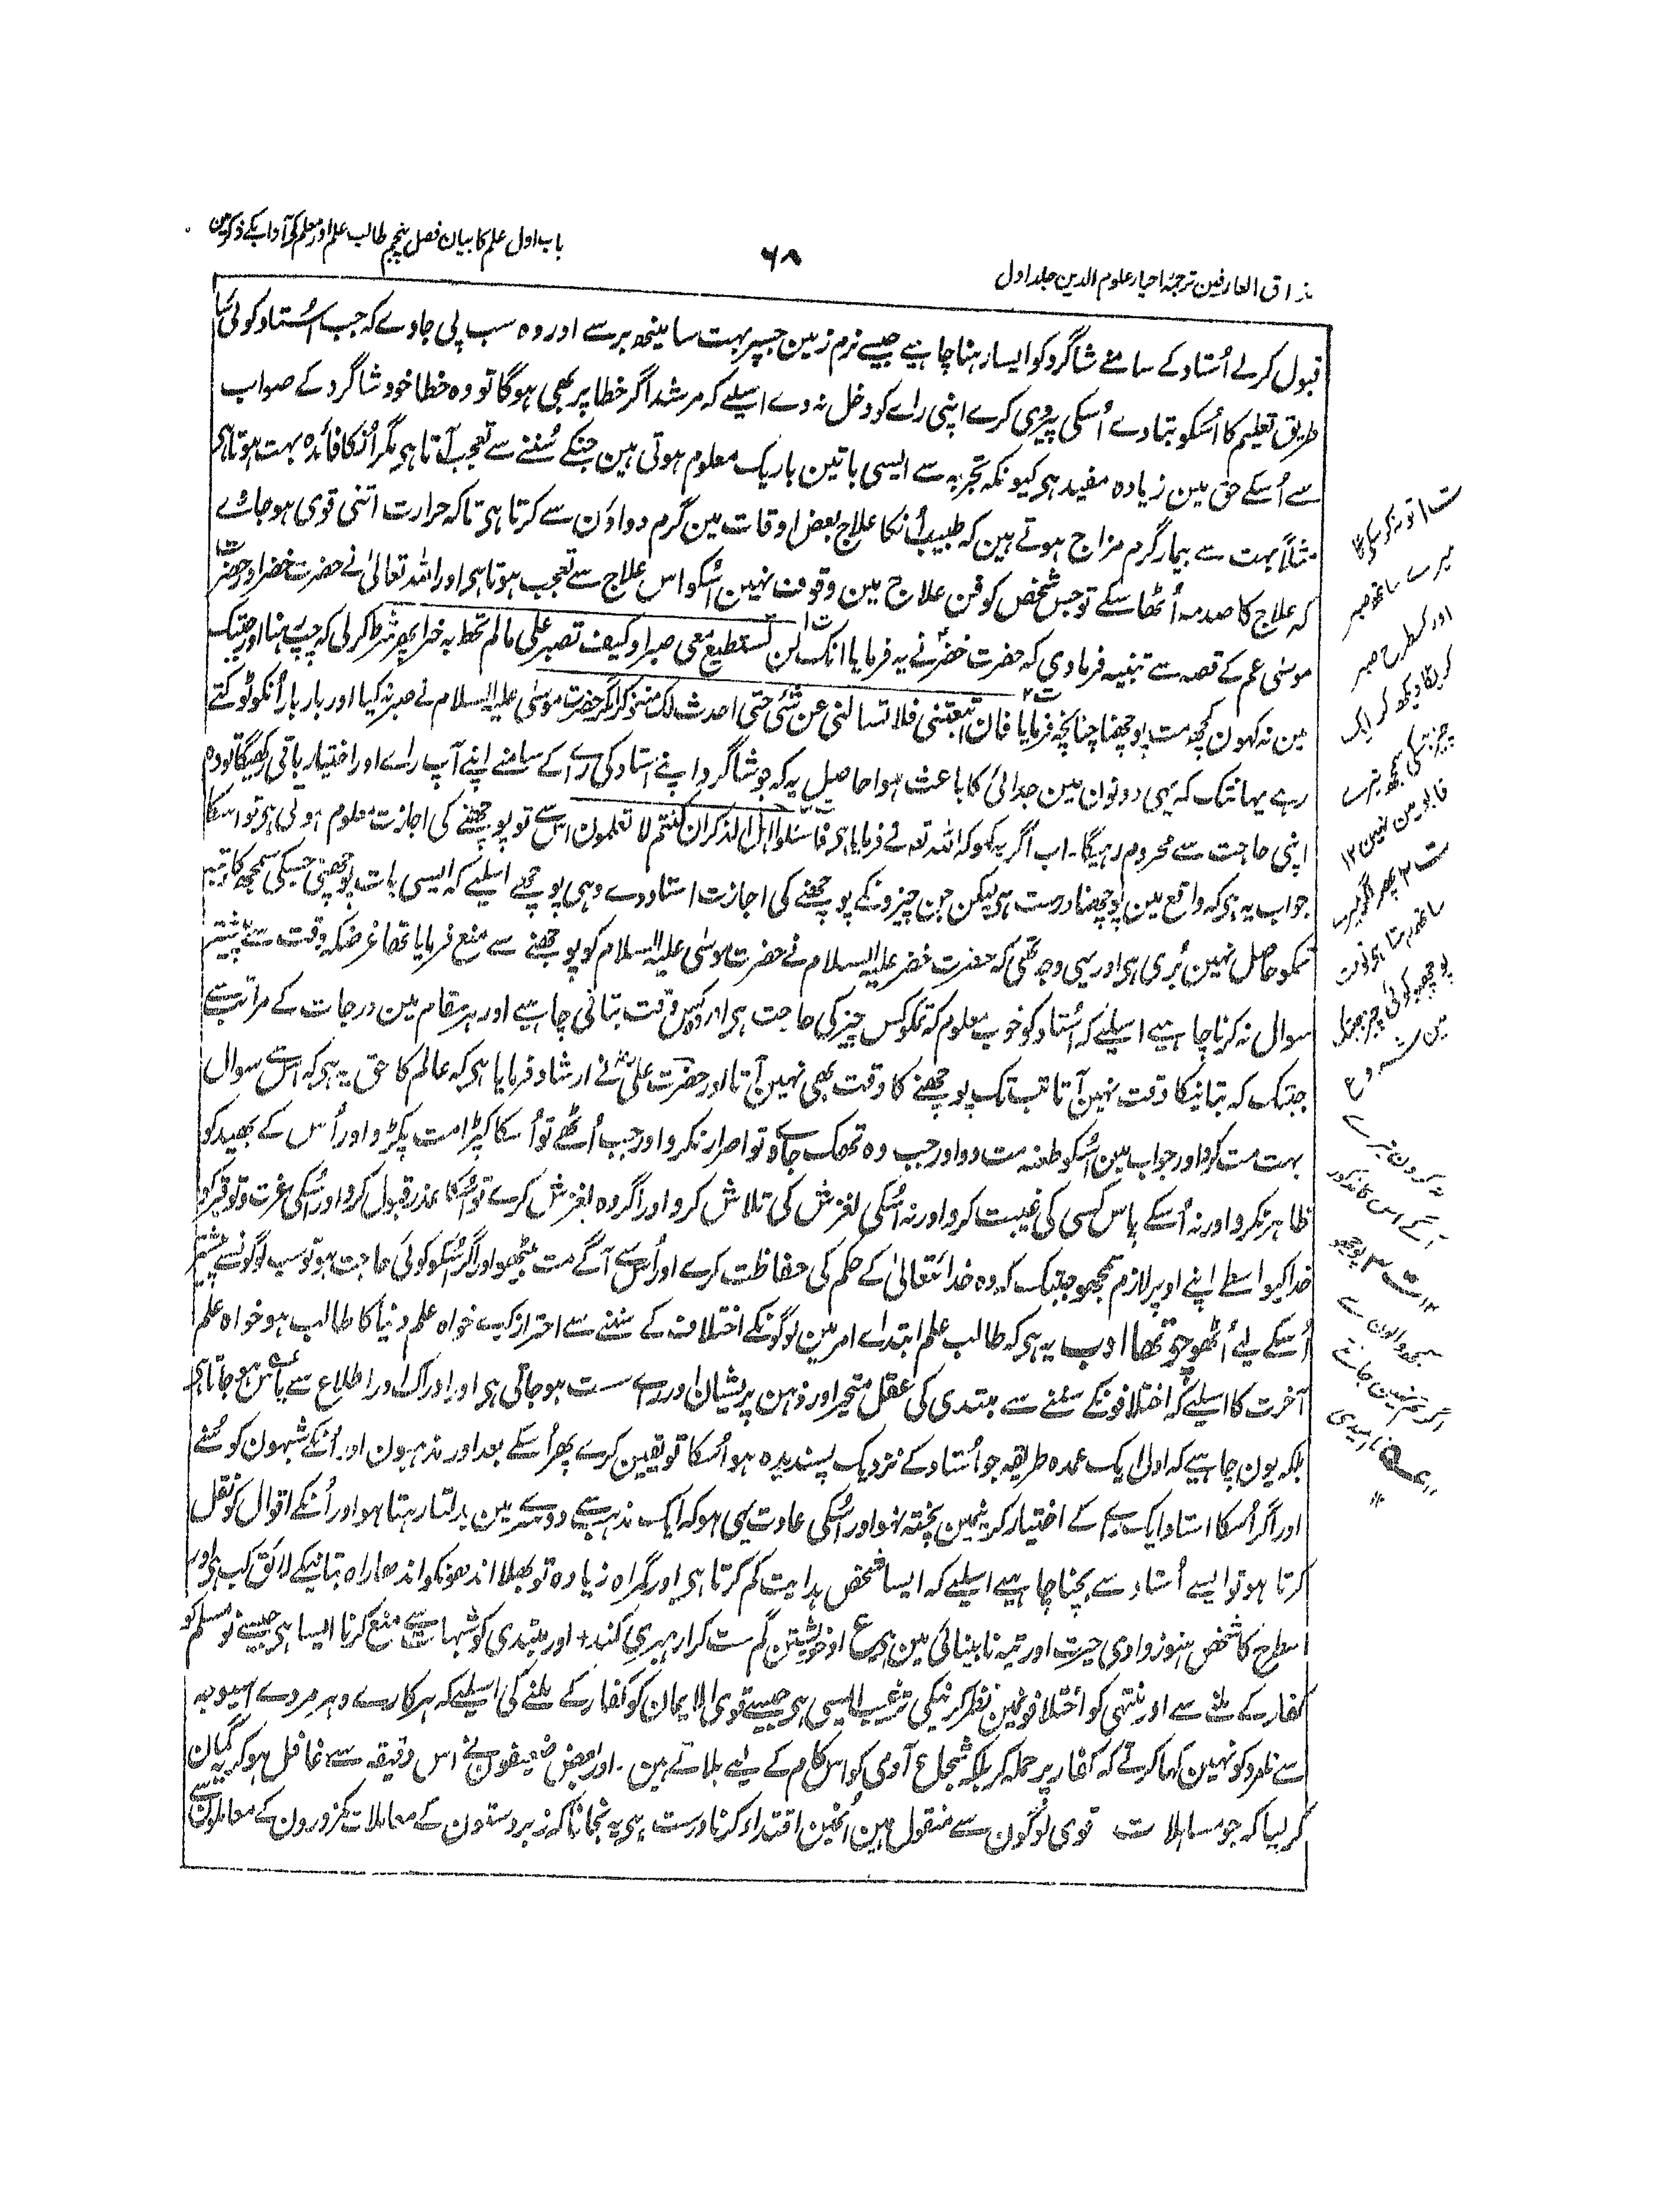 مذاق العارفین ترجمۂ احیاء علوم الدین جلد اول
۶۸
باب اول علم کا بیان فصل پنجم طالب علم اور معلم کے آداب کے ذکر مین
قبول کرلے اُستاد کے سامنے شاگرد کو ایسا رہنا چاہیے جیسے نرم زمین جسپر بہت سا مینھ برسے اور وہ سب پی جاوے کہ جب اُستاد کوئی سا
طریق تعلیم کا اُسکو بتاوے اُسکی پیروی کرے اپنی راے کو دخل نہ دے اسلیے کہ مرشد اگر خطا پر بھی ہوگا تو وہ خطا خود شاگرد کے صواب
سے اُسکے حق مین زیادہ مفید ہی کیونکہ تجربہ سے ایسی باتین باریک معلوم ہوتی ہین جنکے سُننے سے تعجب آتا ہی مگر اُنکا فائدہ بہت ہوتا ہی
مثلاً بہت سے بیمار گرم مزاج ہوتے ہین کہ طبیب اُنکا علاج بعض اوقات مین گرم دواون سے کرتا ہی تاکہ حرارت اتنی قوی ہو جائے
کہ علاج کا صدمہ اُٹھا سکے تو جس شخص کو فن علاج مین وقوف نہین اُسکو اس علاج سے تعجب ہوتا ہی اور اللہ تعالیٰ نے حضرت خضر اور حضرت
موسیٰ عم کے قصہ سے تنبیہ فرمادی کہ حضرت خضر نے یہ فرمایا انک لن تستطیع معی صبرا وکیف تصبر علی مالم تحط بہ خبرا پھر شرط کرلی کہ چپ رہنا اور جبتک
مین نہ کہون کچھ مت پوچھنا چنانچہ فرمایا فان اتبعتنی فلا تسالنی عن شئی حتی احدث لک منہ ذکرا مگر حضرت موسیٰ علیہ السلام نے صبر نہ کیا اور بار بار اُنکو ٹوکتے
رہے یہانتک کہ یہی دونوان مین جدائی کا باعث ہوا حاصل یہ کہ جو شاگرد اپنے اُستاد کی راے کے سامنے اپنے آپ راے اور اختیار باقی رکھیگا تو وہ
اپنی حاجت سے محروم رہیگا۔ اب اگر یہ کہو کہ اللہ تعہ نے فرمایا ہی فاسئلوا اہل الذکر ان کنتم لا تعلمون اس سے تو پوچھنے کی اجازت معلوم ہوتی ہی تو اسکا
جواب یہ ہی کہ واقع مین پوچھنا درست ہی لیکن جن چیزونکے پوچھنے کی اجازت استاد دے وہی پوچھے اسلیے کہ ایسی بات پوچھنی جسکی سمجھ کا رتبہ
تمکو حاصل نہین بُری ہی اور یہی وجہ تھی کہ حضرت خضر علیہ السلام نے حضرت موسیٰ علیہ السلام کو پوچھنے سے منع فرمایا تھا غرضکہ وقت سے پیشتر
سوال نہ کرنا چاہیے اسلیے کہ اُستاد کو خوب معلوم کہ تمکو کس چیز کی حاجت ہی اور کس وقت بتانی چاہیے اور ہر مقام مین درجات کے مراتب سے
جبتک کہ بتانیکا وقت نہین آتا تب تک پوچھنے کا وقت بھی نہین آتا اور حضرت علی نے ارشاد فرمایا ہی کہ عالم کا حق یہ ہی کہ اُس سے سوال
بہت مت کرو اور جواب مین اُسکو طعنہ مت دو اور جب وہ تھک جاے تو اصرار نکرو اور جب اُٹھے تو اُسکا کپڑا مت پکڑو اور اُس کے بھید کو
ظاہر نکرو اور نہ اُسکے پاس کسی کی غیبت کرو اور نہ اُسکی لغزش کی تلاش کرو اور اگر وہ لغزش کرے تو اُسکا عذر قبول کرو اور اُسکی عزت و توقیر کو
خدا کیواسطے اپنے اوپر لازم سمجھو جبتک کہ وہ خدا تعالیٰ کے حکم کی حفاظت کرے اور اُس سے آگے مت بیٹھو اور اگر اُسکو کوئی حاجت ہو تو سب لوگونسے پیشتر
اُسکے لیے اُٹھو چوتھا ادب یہ ہی کہ طالب علم ابتداے امر مین لوگونکے اختلاف کے سننے سے احتراز کرے خواہ علم دنیا کا طالب ہو خواہ علم
آخرت کا اسلیے کہ اختلافونکے سننے سے مبتدی کی عقل متحیر اور ذہن پریشان اور راے سست ہو جاتی ہی اور ادراک اور اطلاع سے یاس ہو جاتا ہی
بلکہ یون چاہیے کہ اول ایک عمدہ طریقہ جو اُستاد کے نزدیک پسندیدہ ہو اُسکا تو یقین کرے پھر اُسکے بعد اور مذہبون اور اُنکے شبہون کو سُنے
اور اگر اُسکا استاد ایک راے کے اختیار کرنیمین پختہ نہو اور اُسکی عادت یہی ہو کہ ایک مذہب سے دوسرے مین بدلتا رہتا ہو اور اُنکے اقوال کو نقل
کرتا ہو تو ایسے اُستاد سے بچنا چاہیے اسلیے کہ ایسا شخص ہدایت کم کرتا ہی اور گمراہ زیادہ تو بھلا اندھونکو اندھا راہ بتانیکے لائق کب ہی اور
اسطرح کا شخص ہنوز وادی حیرت اور تیہ نابینائی مین ہی ع او خویشتن گم ست کرا رہبری کند + اور مبتدی کو شبہات سے منع کرنا ایسا ہی جیسے نو مسلم کو
کفار کے ملنے سے اور منتہی کو اختلافونمین نظر کرنیکی ترغیب ایسی ہی جیسے قوی الایمان کو کفار کے ملنے کی اسلیے کہ ہر کارے و ہر مردے اسیوجہ
سے نامرد کو نہین کہا کرتے کہ کفار پر حملہ کر بلکہ شجاع آدمی کو اس کام کے لیے بلاتے ہین۔ اور بعض ضعیفون نے اس دقیقہ سے غافل ہوکر یہ گمان
کر لیا کہ جو مساہلات قوی لوگون سے منقول ہین اُنھین اقتداء کرنا درست ہی یہ نجانا کہ زبردستون کے معاملات کمزورون کے معاملون سے
ت۱ تو نہ کر سکیگا
میرے ساتھ صبر
اور کسطرح صبر
کریگا دیکھ کر ایک
چیز جسکی سمجھ تیرے
قابو مین نہین ۱۲
ت۲ پھر اگر میرے
ساتھ رہتا ہی تو مت
پوچھیو کوئی چیز جبتک
مین شروع
نہ کرون تیرے
آگے اس کا مذکور
۱۲ ت۳ پوچھو
یاد والون سے
اگر تم نہین جانتے
۱۲ ناامیدی
۱۲